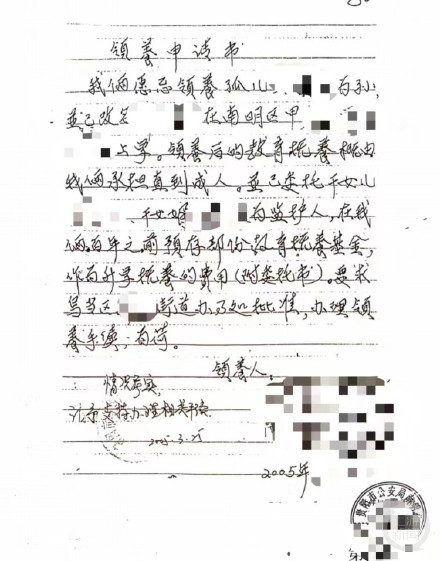 领养申请书
我俩愿意领养孤儿 为孙,
並已改名 在南明区甲
上学。领养后的教育抚养概由
我俩承担直到成人。並已委托干女儿
干女婿 为监护人,在我
俩百年之前预存部份教育抚养基金,
作为升学抚养的费用(附委托书)。要求
乌当区 街道办 批准,办理领
养手续;为荷。
领养人:
情况属实,
请予支持办理相关手续
2005.3.25
2005年
贵阳市公安局南明